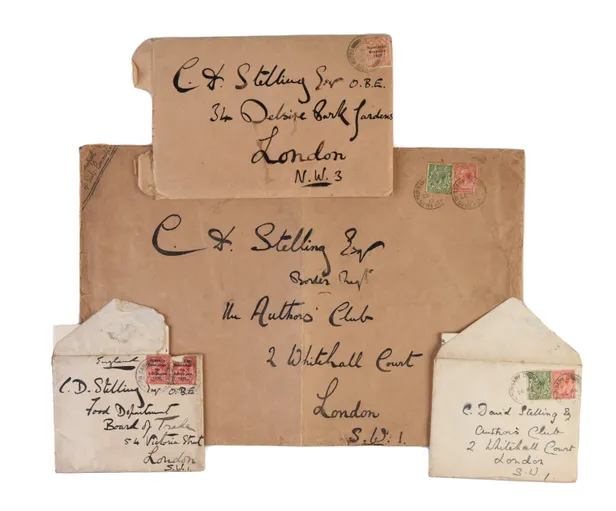 C. D. Stelling Esq O.B.E.
34 Belsize Park Gardens
London
N.W. 3
C. D. Stelling Esq
Border Regt
The Authors' Club
2 Whitehall Court
London
S.W. 1.
England
C. D. Stelling Esq O.B.E
Food Department
Board of Trade
54 Victoria Street
London
S.W.1
C. David Stelling Esq
Authors Club
2 Whitehall Court
London
S.W.1